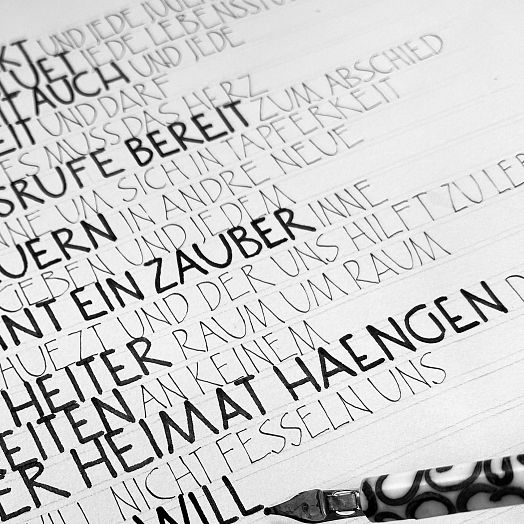 UND JEDE
JEDE LEBENSSTU
AUCH UND JEDE
EIT UND DARF
ES MUSS DAS HERZ
SRUFE BEREIT ZUM ABSCHIED
NE UM SICH IN TAPFERKEIT
UERN IN ANDRE NEUE
GEBEN UND JEDEM
NT EIN ZAUBER INNE
HUETZT UND DER UNS HILFT ZU LEB
HEITER RAUM UM RAUM
EITEN AN KEINEM
ER HEIMAT HAENGEN D
ILL NICHT FESSELN UNS
WILL